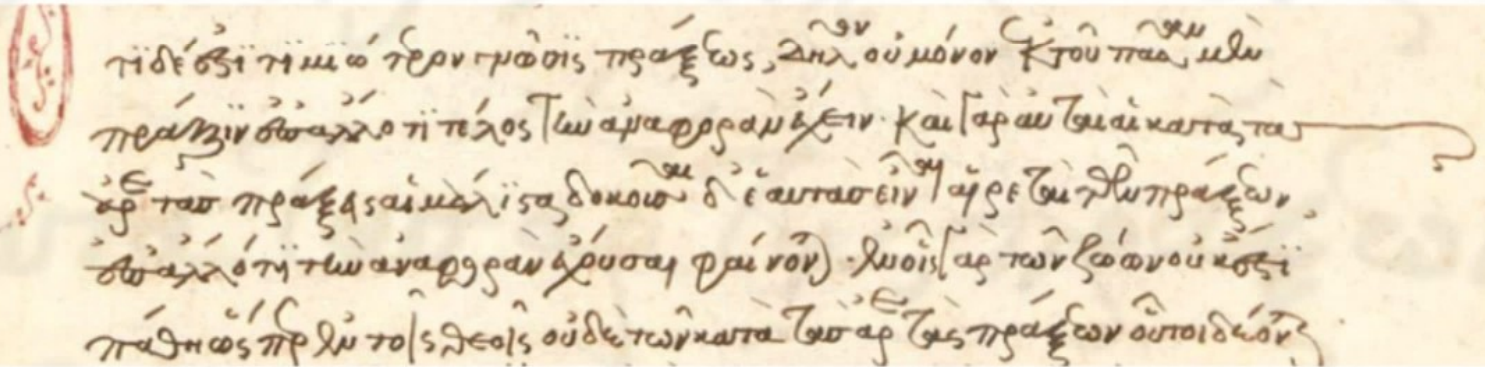 Ὅτι δέ ἐστι τιμιώτερον γνῶσις πράξεως, δῆλον οὐ μόνον ἐκ τοῦ πᾶσαν μὲν
πρᾶξιν ἐπ' ἄλλό τι τέλος τὴν ἀναφορὰν ἔχειν· καὶ γὰρ αὗται αἱ κατὰ τὰς
ἀρετὰς πράξεις αἱ μάλιστα δοκοῦσαι δι' ἑαυτὰς εἶναι αἱρεταὶ τῶν πράξεων,
ἐπ' ἄλλό τι τὴν ἀναφορὰν ἔχουσαι φαίνονται· ἐν οἷς γὰρ τῶν ζώων οὐκ ἔστι
πάθη ὥσπερ ἐν τοῖς θεοῖς οὐδὲ τῶν κατὰ τὰς ἀρετὰς πράξεων οὗτοι δέονται